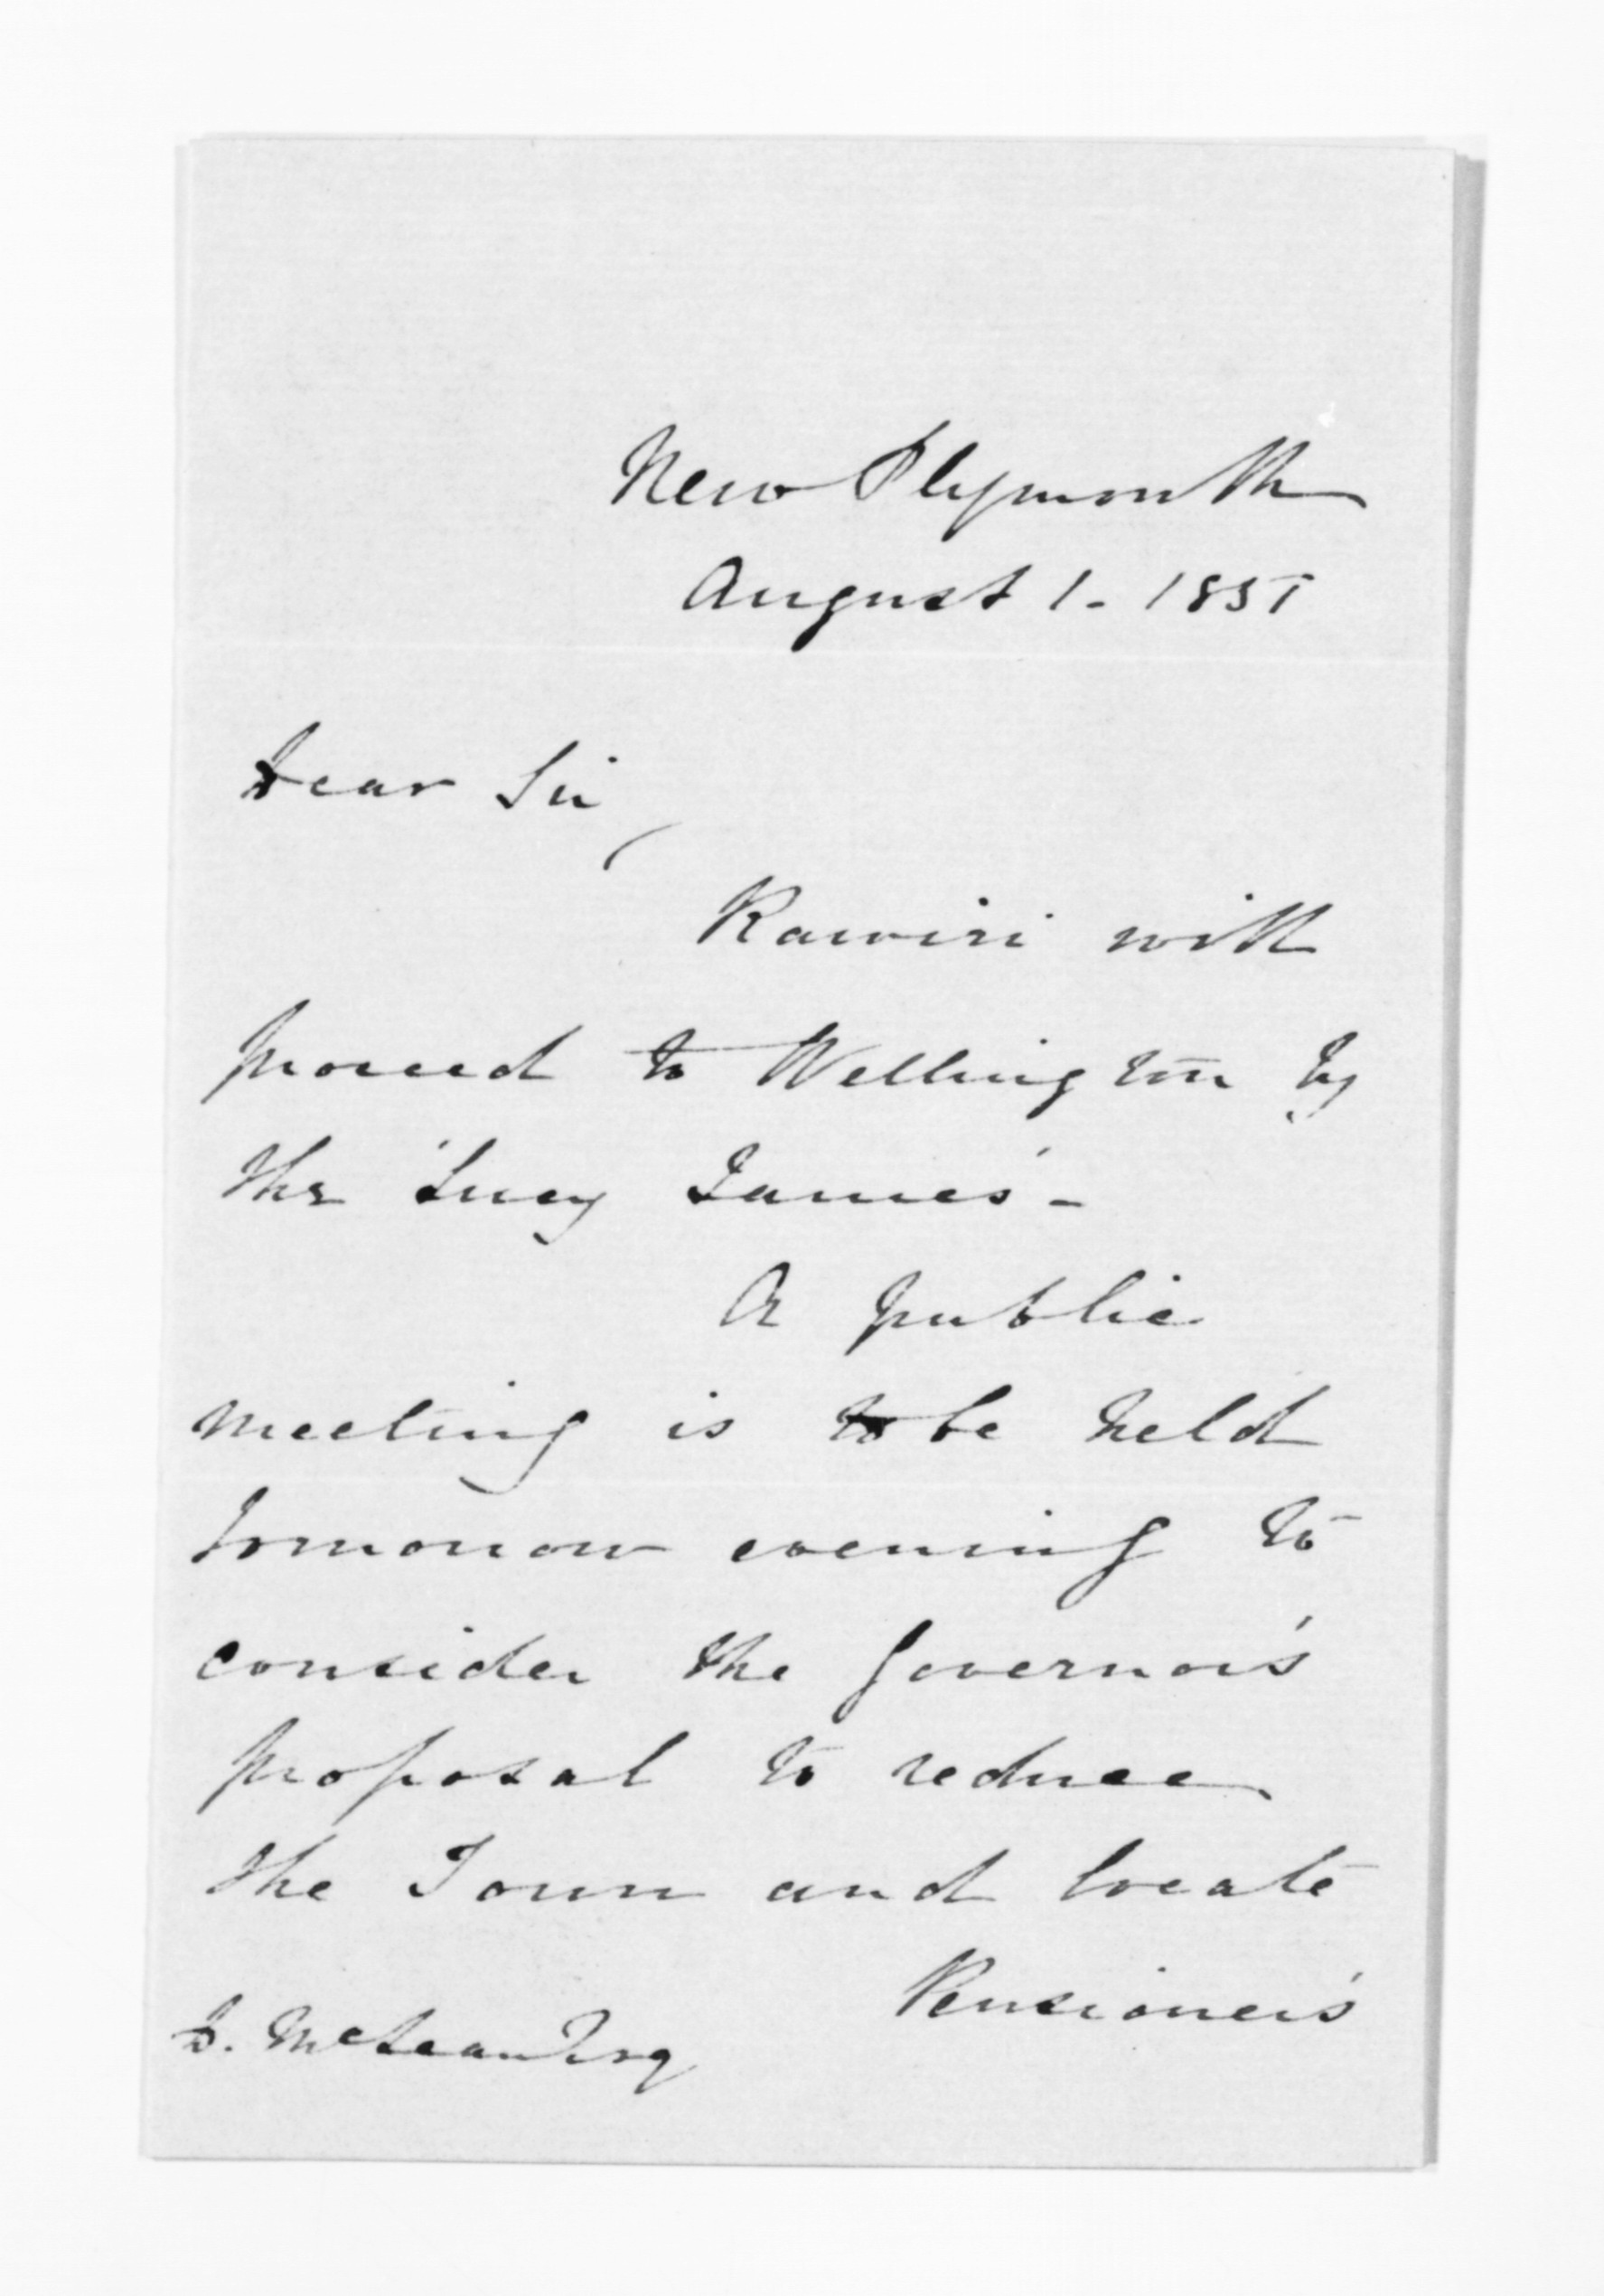 New Plymouth
August 1 - 1851
Dear Sir,
Rawiri will
proceed to Wellington by
the 'Lucy James' -
A public
meeting is to be held
tomorrow evening to
consider the Governor's
proposal to reduce
the Town and locate
Pensioner's
D. McLean Esq